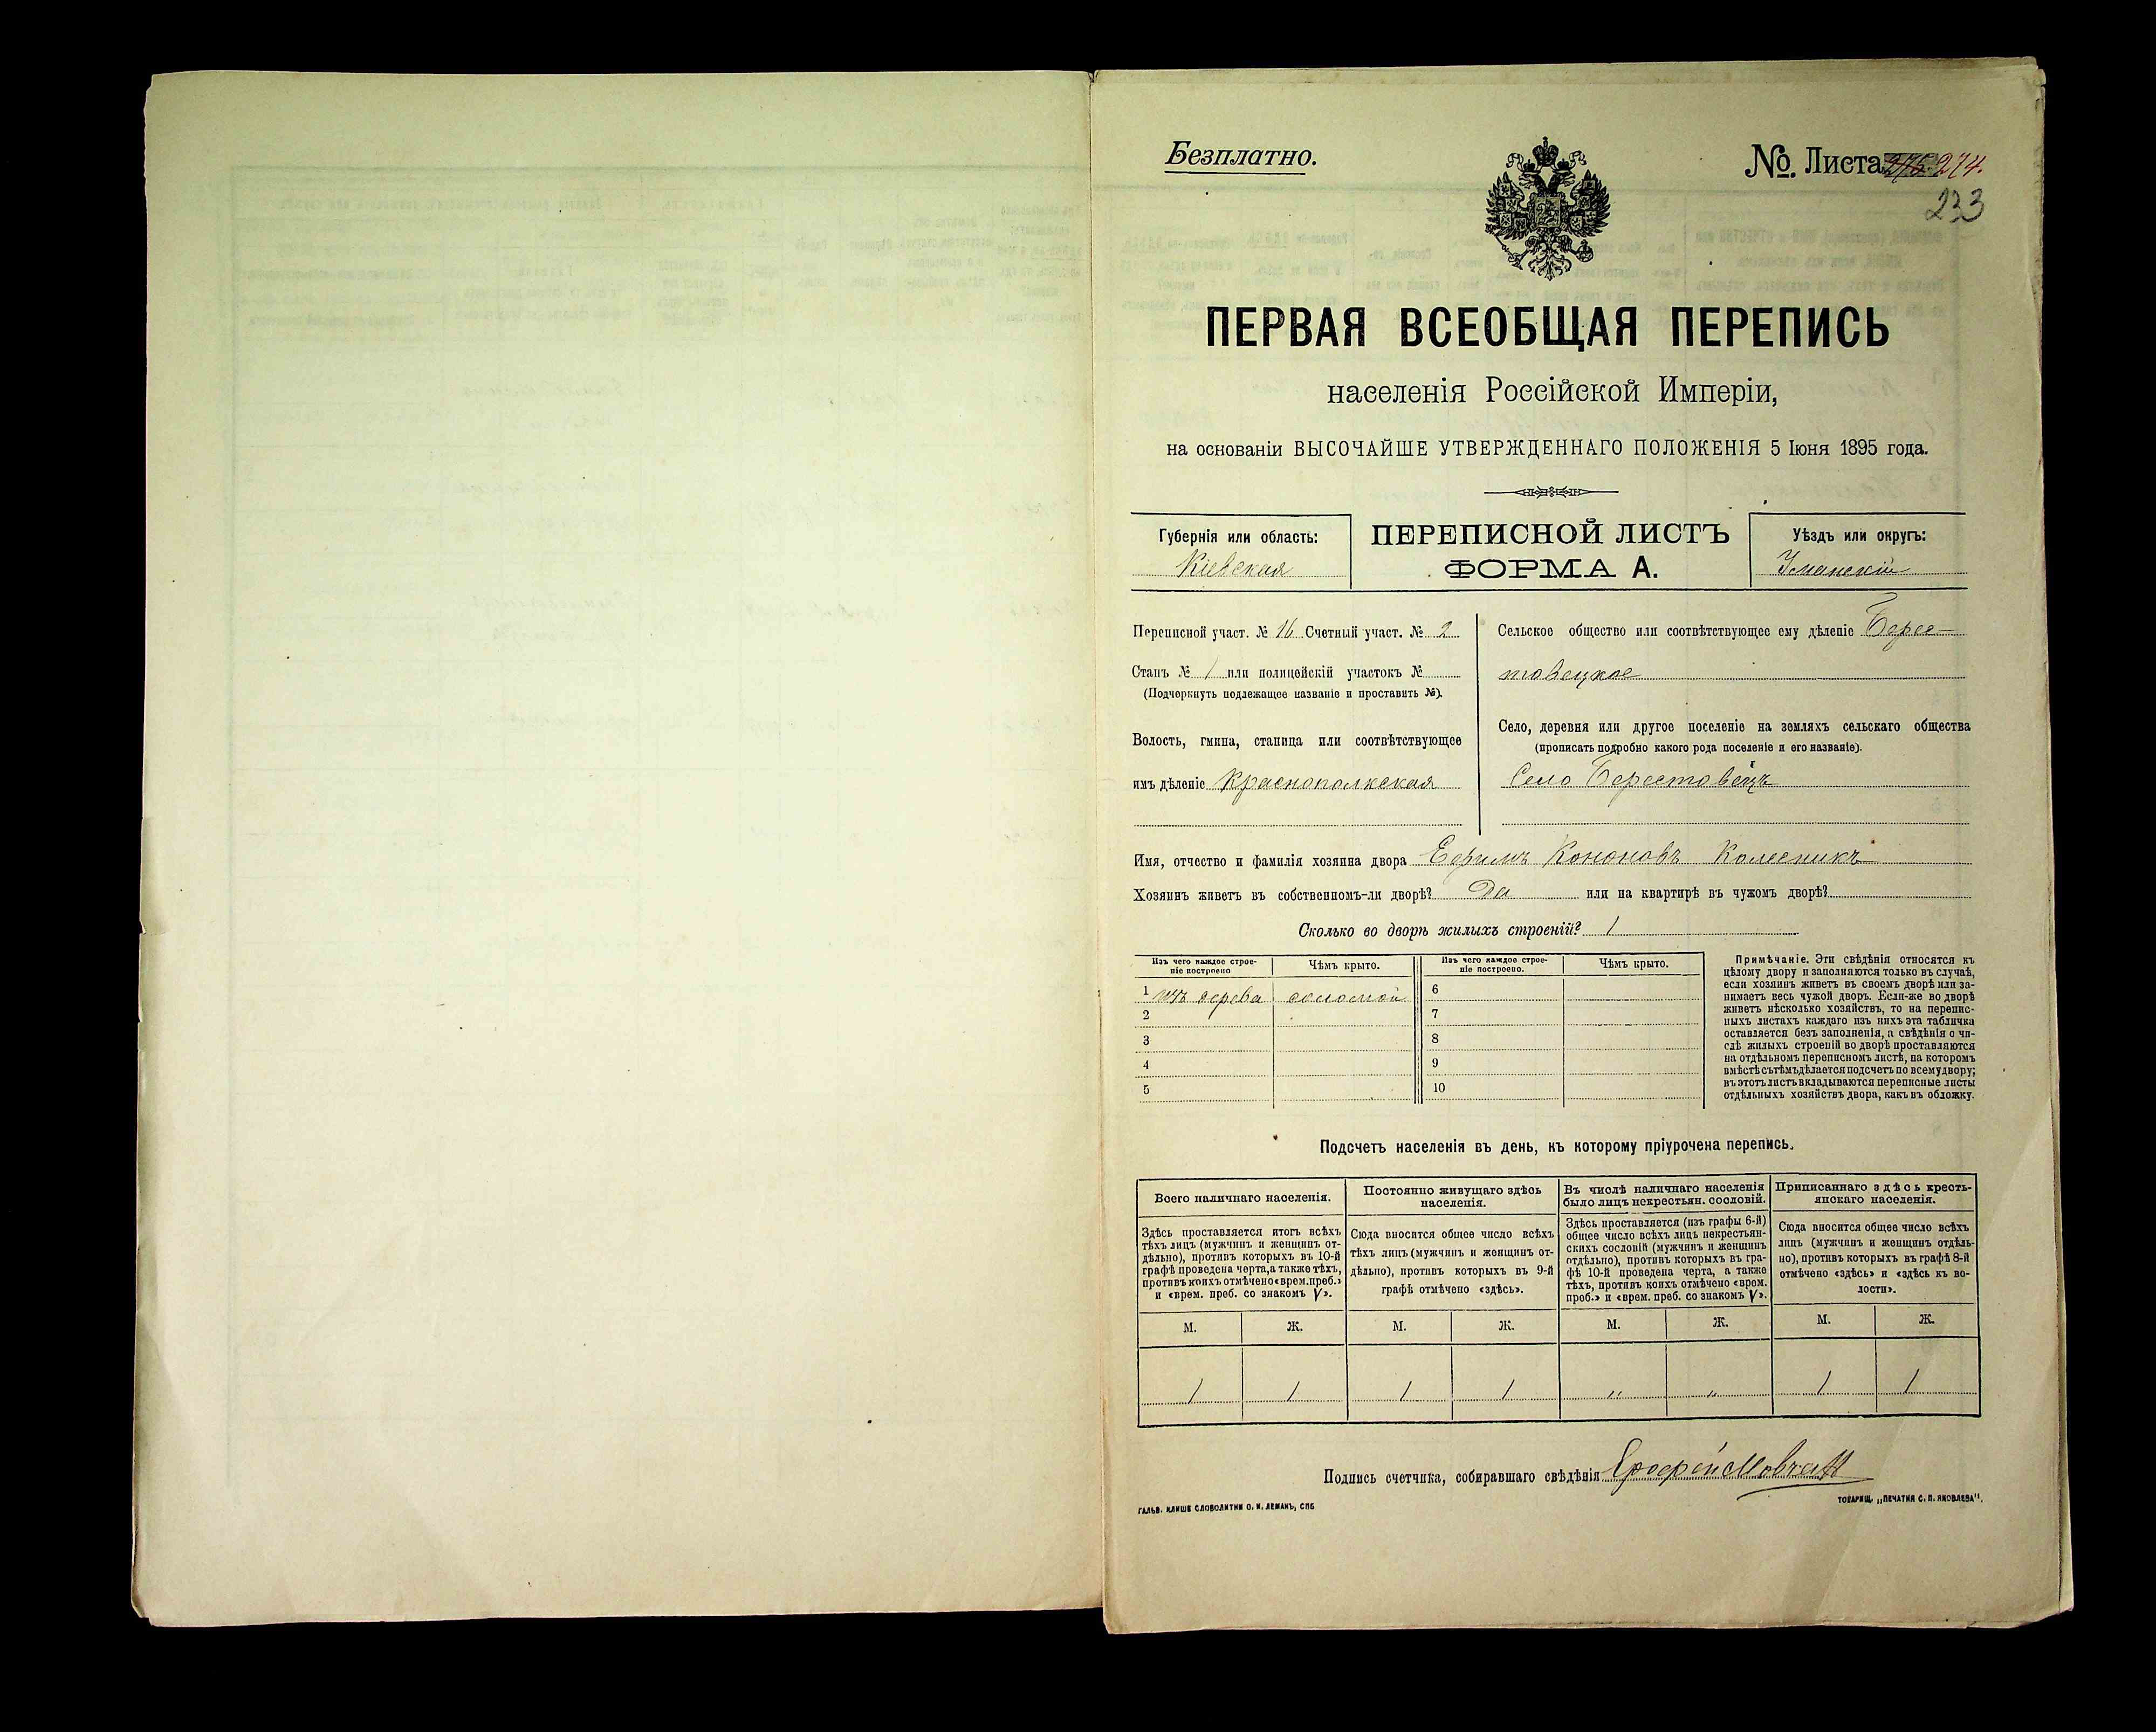 Безплатно.
№. Листа 275. 274.
233
ПЕРВАЯ ВСЕОБЩАЯ ПЕРЕПИСЬ
населенія Россійской Имперіи,
на основаніи ВЫСОЧАЙШЕ УТВЕРЖДЕННАГО ПОЛОЖЕНІЯ 5 Іюня 1895 года.
Губернія или область:
Кіевская
ПЕРЕПИСНОЙ ЛИСТЪ
ФОРМА А.
Уѣздъ или округъ:
Уманскій
Переписной участ. № 16 Счетный участ. № 2
Станъ № 1 или полицейскій участокъ №
(Подчеркнуть подлежащее названіе и проставить №).
Волость, гмина, станица или соотвѣтствующее
имъ дѣленіе Краснополкская
Сельское общество или соотвѣтствующее ему дѣленіе Берес-
товецкое
Село, деревня или другое поселеніе на земляхъ сельскаго общества
(прописать подробно какого рода поселеніе и его названіе).
Село Берестовецъ
Имя, отчество и фамилія хозяина двора Ефримъ Кононовъ Колесникъ
Хозяинъ живетъ въ собственномъ-ли дворѣ? Да или на квартирѣ въ чужомъ дворѣ?
Сколько во дворѣ жилыхъ строеній? 1
Изъ чего каждое строе-
ніе построено
Чѣмъ крыто.
Изъ чего каждое строе-
ніе построено.
Чѣмъ крыто.
1 изъ дерева соломой
2
3
4
5
6
7
8
9
10
Примѣчаніе. Эти свѣдѣнія относятся къ
цѣлому двору и заполняются только въ случаѣ,
если хозяинъ живетъ въ своемъ дворѣ или за-
нимаетъ весь чужой дворъ. Если-же во дворѣ
живетъ нѣсколько хозяйствъ, то на перепис-
ныхъ листахъ каждаго изъ нихъ эта табличка
оставляется безъ заполненія, а свѣдѣнія о чи-
слѣ жилыхъ строеній во дворѣ проставляются
на отдѣльномъ переписномъ листѣ, на которомъ
вмѣстѣ съ тѣмъ дѣлается подсчетъ по всему двору;
въ этотъ листъ вкладываются переписные листы
отдѣльныхъ хозяйствъ двора, какъ въ обложку.
Подсчетъ населенія въ день, къ которому пріурочена перепись.
Всего наличнаго населенія.
Здѣсь проставляется итогъ всѣхъ
тѣхъ лицъ (мужчинъ и женщинъ от-
дѣльно), противъ которыхъ въ 10-й
графѣ проведена черта, а также тѣхъ,
противъ коихъ отмѣчено «врем. преб.»
и «врем. преб. со знакомъ V».
Постоянно живущаго здѣсь
населенія.
Сюда вносится общее число всѣхъ
тѣхъ лицъ (мужчинъ и женщинъ от-
дѣльно), противъ которыхъ въ 9-й
графѣ отмѣчено «здѣсь».
Въ числѣ наличнаго населенія
было лицъ некрестьян. сословій.
Здѣсь проставляется (изъ графы 6-й)
общее число всѣхъ лицъ некрестьян-
скихъ сословій (мужчинъ и женщинъ
отдѣльно), противъ которыхъ въ гра-
фѣ 10-й проведена черта, а также
тѣхъ, противъ коихъ отмѣчено «врем.
преб.» и «врем. преб. со знакомъ V».
Приписаннаго здѣсь кресть-
янскаго населенія.
Сюда вносится общее число всѣхъ
лицъ (мужчинъ и женщинъ отдѣль-
но), противъ которыхъ въ графѣ 8-й
отмѣчено «здѣсь» и «здѣсь къ во-
лости».
М. Ж. М. Ж. М. Ж. М. Ж.
1 1 1 1 " " 1 1
Подпись счетчика, собиравшаго свѣдѣнія Ерофей Мовчан
ГАЛЬВ. КЛИШЕ СЛОВОЛИТНИ О. И. ЛЕМАНЪ, СПБ
ТОВАРИЩ. „ПЕЧАТНЯ С. П. ЯКОВЛЕВА".